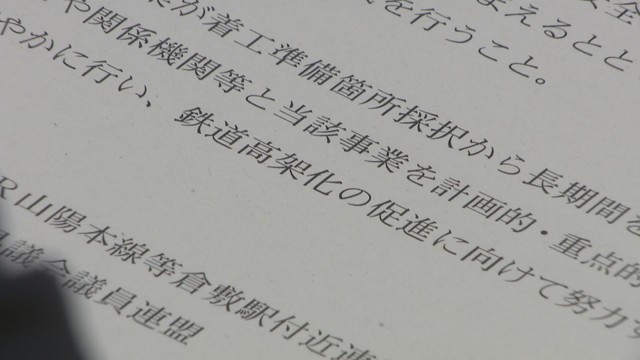 を行うこと。
が着工準備箇所採択から長期間を
や関係機関等と当該事業を計画的・重点的
やかに行い、鉄道高架化の促進に向けて努力す
R山陽本線等倉敷駅付近連
議会議員連盟